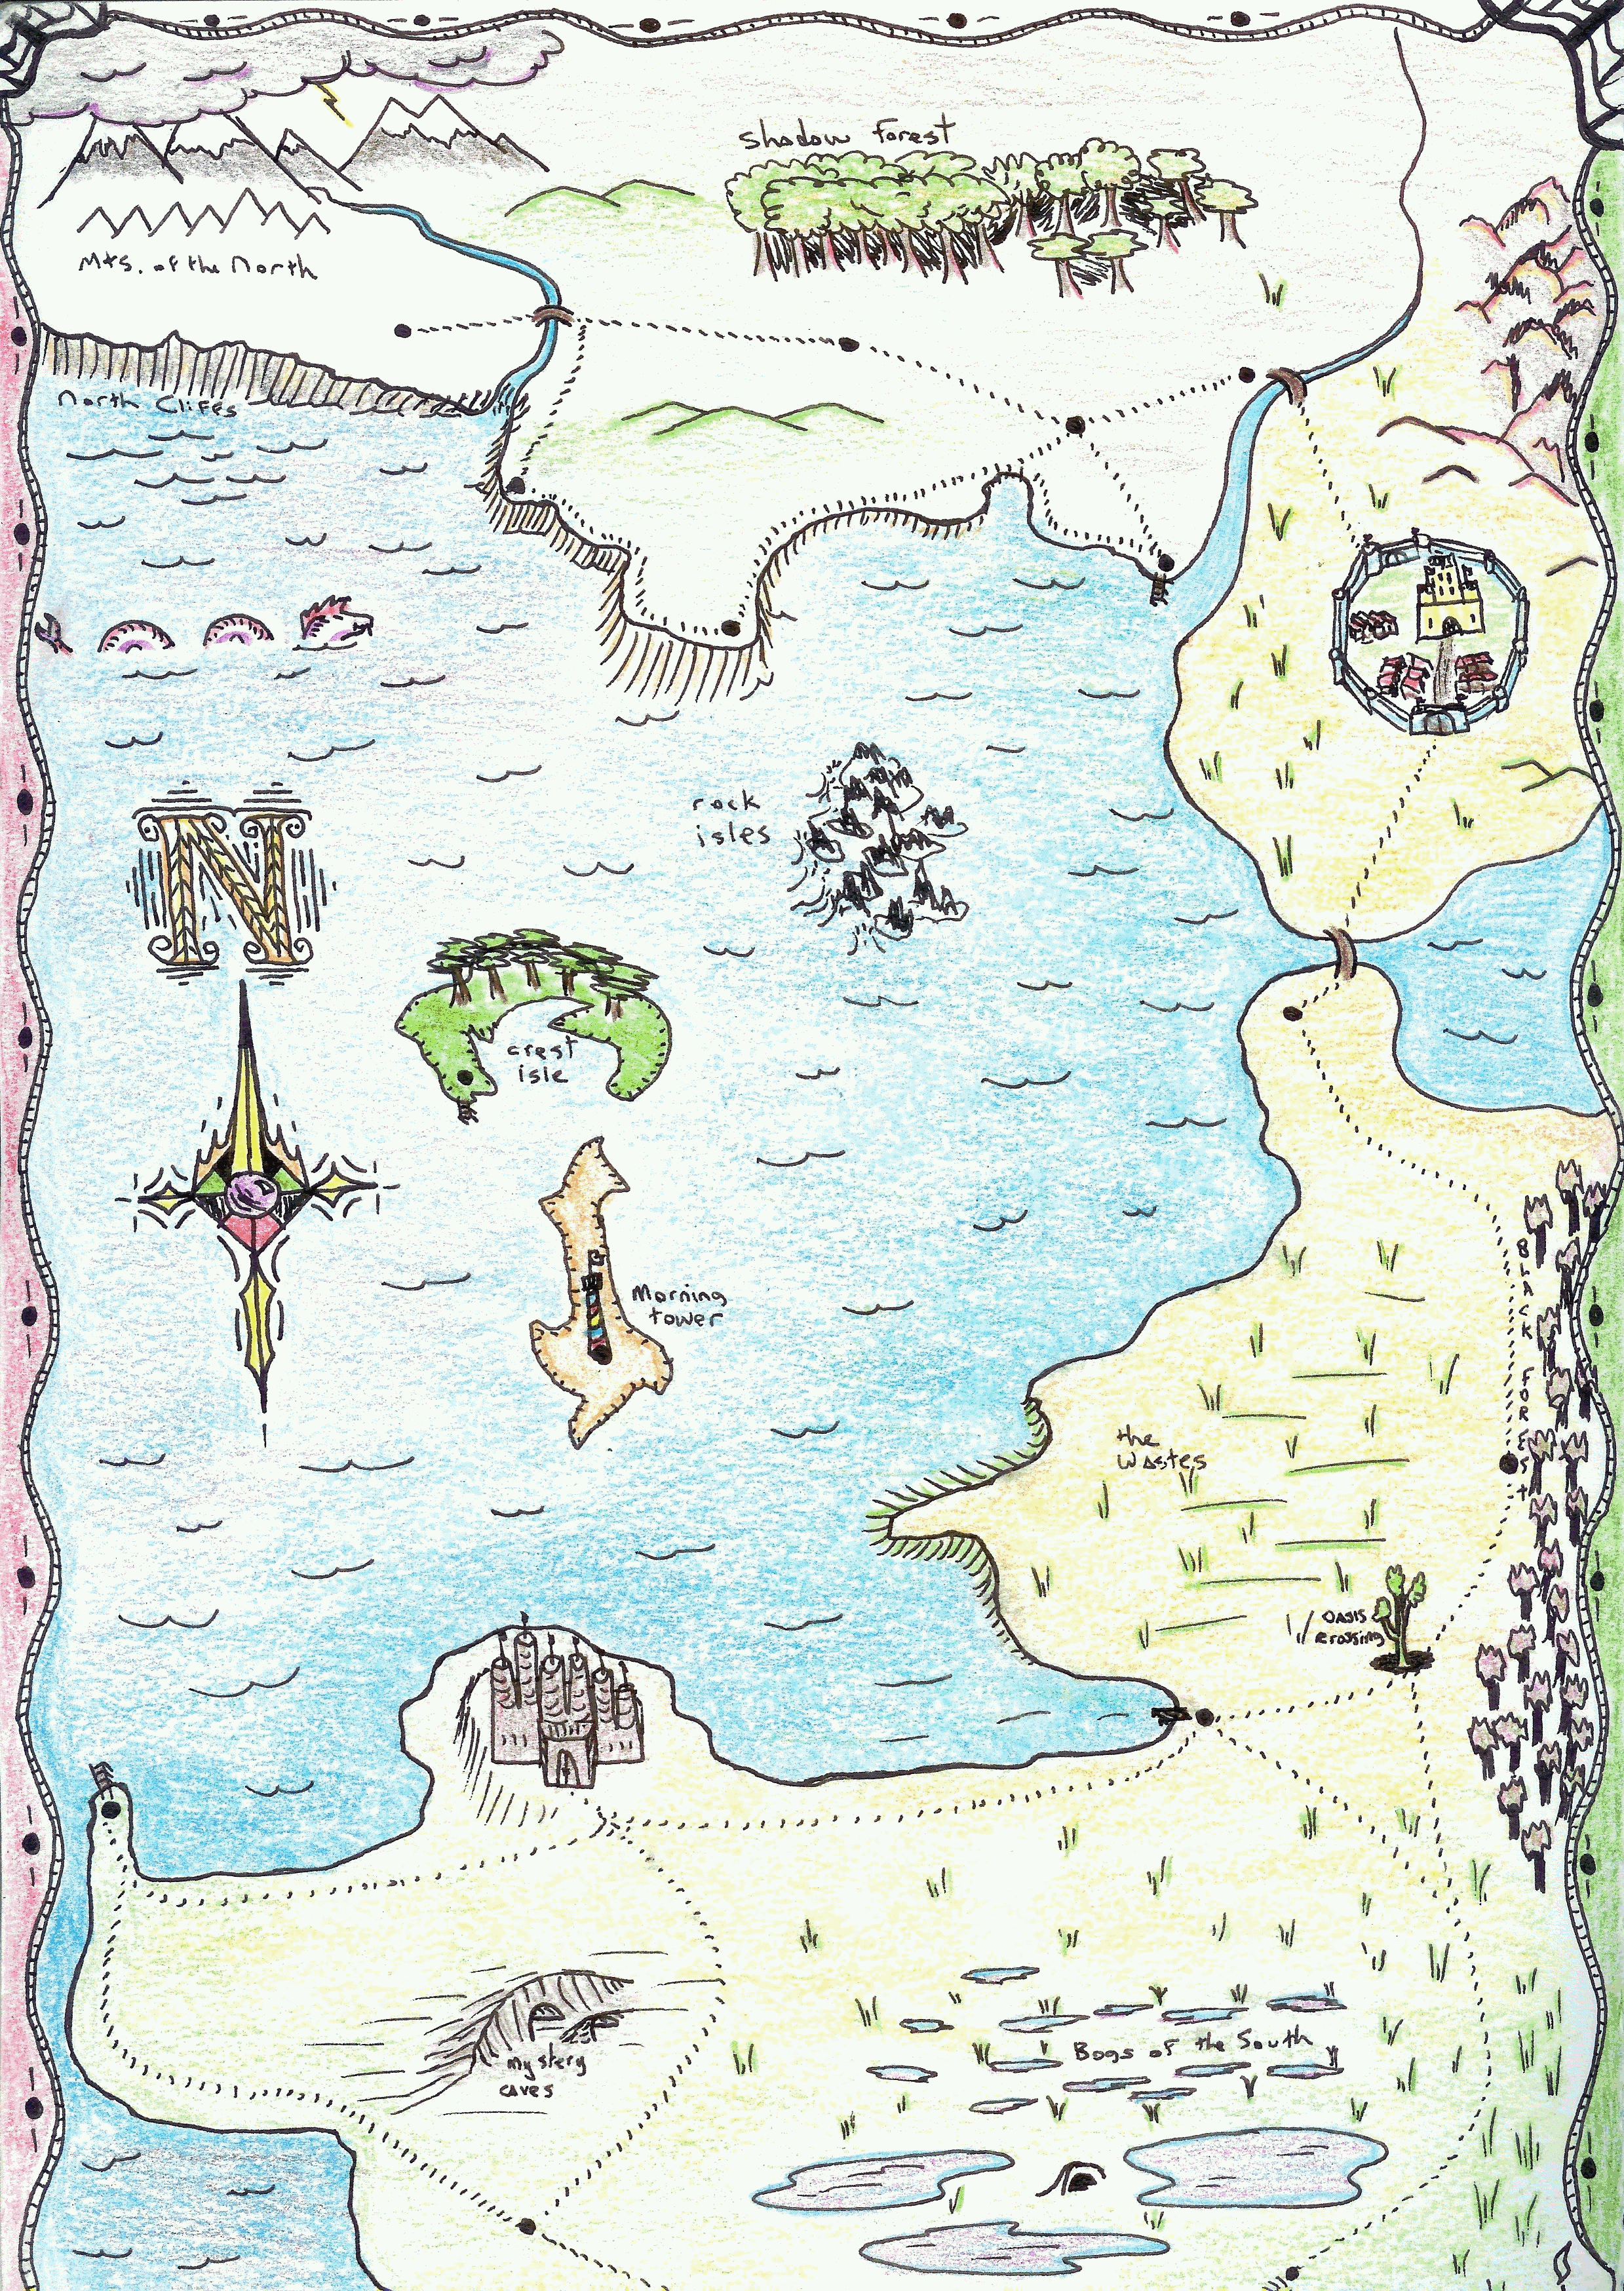 shadow Forest
Mts. of the North
North Cliffs
N
rock
isles
crest
isle
Morning
tower
BLACK FOREST
the
Wastes
OASIS
crossing
mystery
caves
Bogs of the South